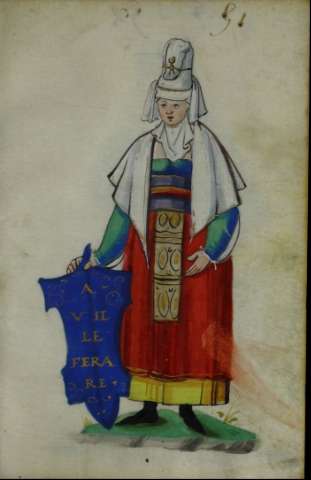 51
A
VIL
LE
FERA
RE